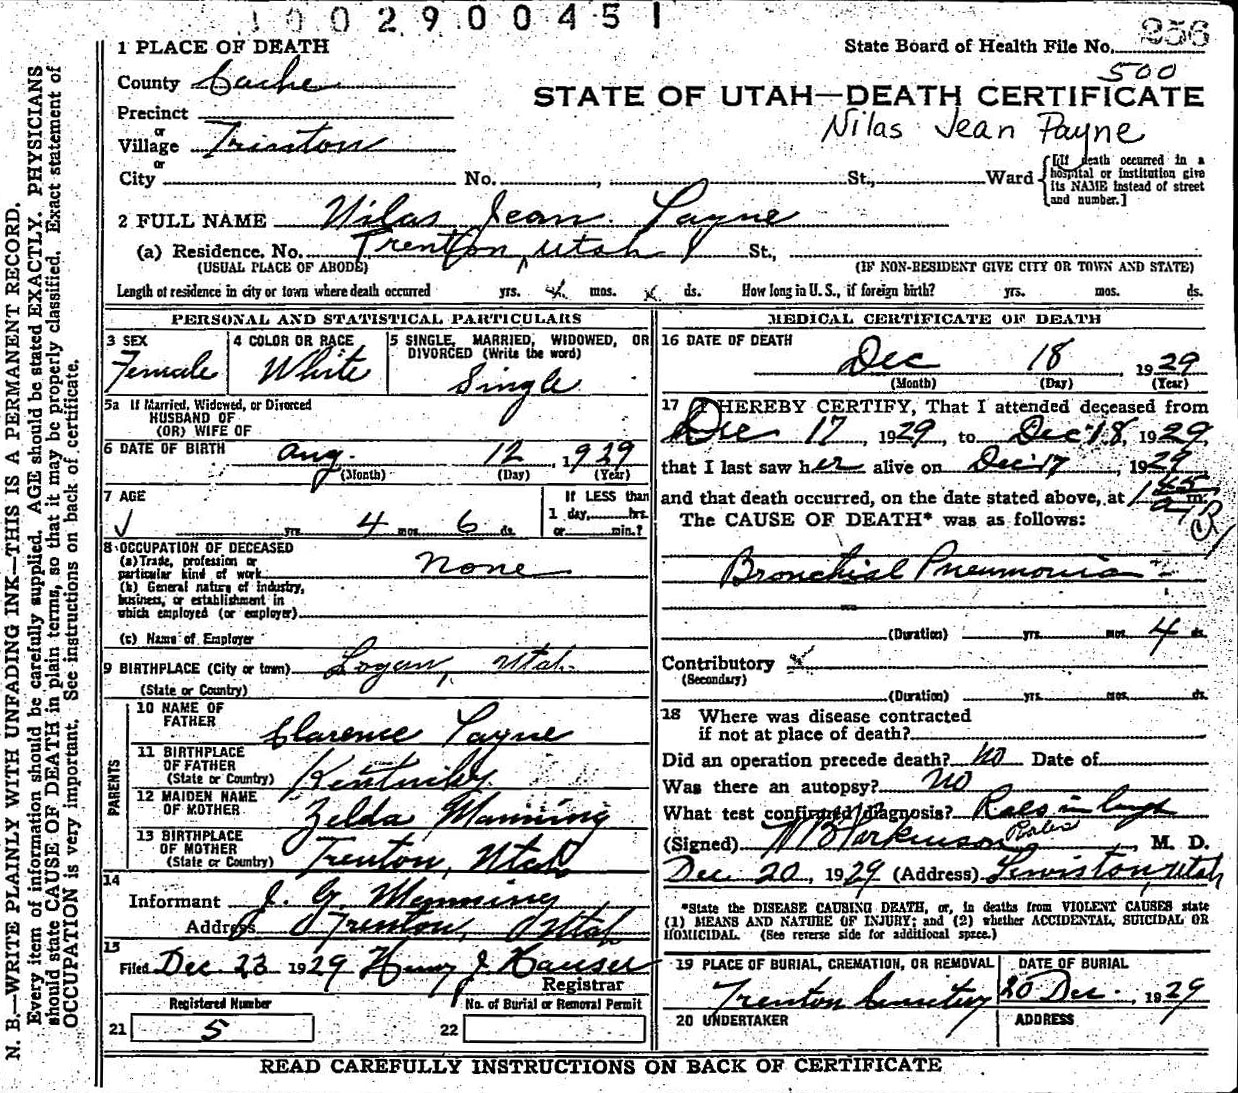 1002900451
1 PLACE OF DEATH
State Board of Health File No. 256
500
County Cache
STATE OF UTAH—DEATH CERTIFICATE
Precinct
Nilas Jean Payne
or
Village Trinton
or
City No. , St., Ward
[If death occurred in a hospital or institution give its NAME instead of street and number.]
2 FULL NAME Nilas Jean Payne
(a) Residence. No. Trenton, Utah St.,
(USUAL PLACE OF ABODE) (IF NON-RESIDENT GIVE CITY OR TOWN AND STATE)
Length of residence in city or town where death occurred yrs. 4 mos. ds. How long in U. S., if foreign birth? yrs. mos. ds.
PERSONAL AND STATISTICAL PARTICULARS
3 SEX
Female
4 COLOR OR RACE
White
5 SINGLE, MARRIED, WIDOWED, OR DIVORCED (Write the word)
Single
5a If Married, Widowed, or Divorced
HUSBAND OF
(OR) WIFE OF
6 DATE OF BIRTH Aug. 12, 1929
(Month) (Day) (Year)
7 AGE
yrs 4 mos. 6 ds.
If LESS than
1 day, hrs.
or min.?
8 OCCUPATION OF DECEASED
(a) Trade, profession or
particular kind of work None
(b) General nature of industry,
business, or establishment in
which employed (or employer)
(c) Name of Employer
9 BIRTHPLACE (City or town) Logan, Utah
(State or Country)
PARENTS
10 NAME OF
FATHER Clarence Payne
11 BIRTHPLACE
OF FATHER
(State or Country) Kentucky
12 MAIDEN NAME
OF MOTHER Zelda Manning
13 BIRTHPLACE
OF MOTHER
(State or Country) Trenton, Utah
14
Informant J. G. Manning
Address Trenton, Utah
15
Filed Dec. 23 1929 Henry J. Hauser
Registrar
Registered Number
21 5
No. of Burial or Removal Permit
22
MEDICAL CERTIFICATE OF DEATH
16 DATE OF DEATH
Dec 18 1929
(Month) (Day) (Year)
17 I HEREBY CERTIFY, That I attended deceased from
Dec 17 1929, to Dec 18, 1929,
that I last saw her alive on Dec 17, 1929
and that death occurred, on the date stated above, at 1 45 a m.
The CAUSE OF DEATH* was as follows:
Bronchial Pneumonia
(Duration) yrs. mos. 4 ds.
Contributory
(Secondary)
(Duration) yrs. mos. ds.
18 Where was disease contracted
if not at place of death?
Did an operation precede death? No Date of
Was there an autopsy? No
What test confirmed diagnosis? Rales in lungs
Rales
(Signed) W B Parkinson, M. D.
Dec. 20, 1929 (Address) Lewiston, Utah
*State the DISEASE CAUSING DEATH, or, in deaths from VIOLENT CAUSES state
(1) MEANS AND NATURE OF INJURY; and (2) whether ACCIDENTAL, SUICIDAL OR
HOMICIDAL. (See reverse side for additional space.)
19 PLACE OF BURIAL, CREMATION, OR REMOVAL
Trenton Cemetery
DATE OF BURIAL
20 Dec. , 1929
20 UNDERTAKER
ADDRESS
READ CAREFULLY INSTRUCTIONS ON BACK OF CERTIFICATE
N. B.—WRITE PLAINLY WITH UNFADING INK—THIS IS A PERMANENT RECORD.
Every item of information should be carefully supplied. AGE should be stated EXACTLY. PHYSICIANS
should state CAUSE OF DEATH in plain terms, so that it may be properly classified. Exact statement of
OCCUPATION is very important. See instructions on back of certificate.